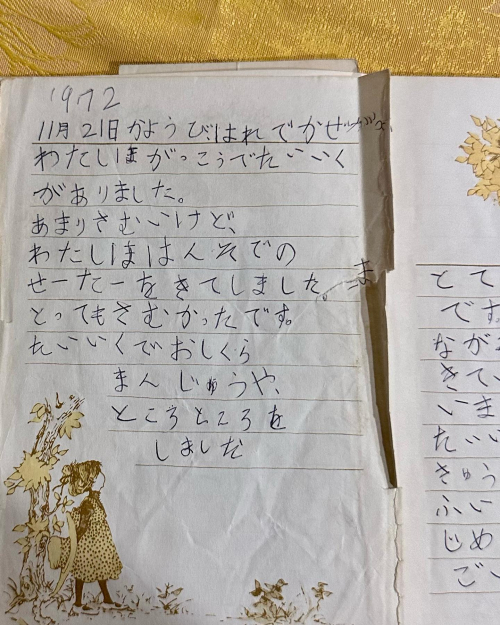 1972
11月21日かようび、はれでかぜ
わたしは がっこうでたいいく
がありました。
あまりさむいけど、
わたしははんそでの
せーたーをきてしました。
とってもさむかったです。
たいいくでおしくら
まんじゅうや、
ところところを
しました
ま
とて
です
なが
きてい
いま
たいい
きゅう
ふい
じめ
ごい